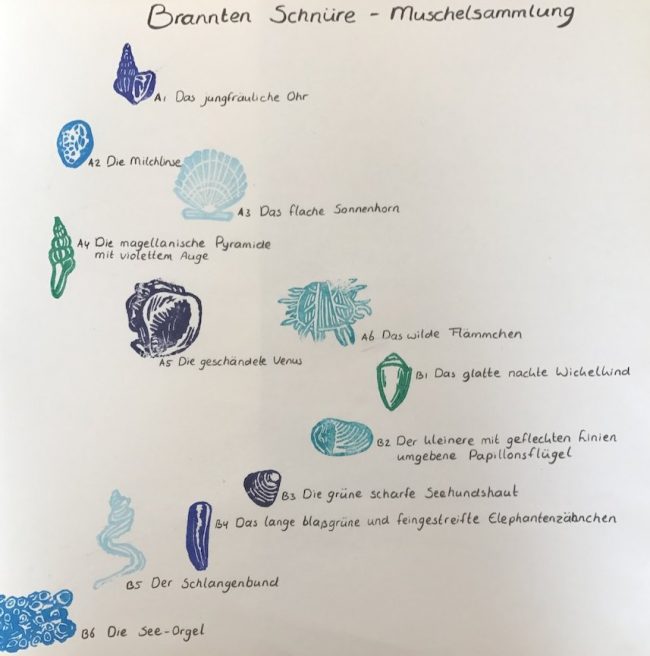 Brannten Schnüre – Muschelsammlung
A1 Das jungfräuliche Ohr
A2 Die Milchlinse
A3 Das flache Sonnenhorn
A4 Die magellanische Pyramide
mit violettem Auge
A5 Die geschändete Venus
A6 Das wilde Flämmchen
B1 Das glatte nackte Wickelkind
B2 Der kleinere mit geflechten Linien
umgebene Papillonsflügel
B3 Die grüne scharfe Seehundshaut
B4 Das lange blaßgrüne und feingestreifte Elephantenzähnchen
B5 Der Schlangenbund
B6 Die See-Orgel